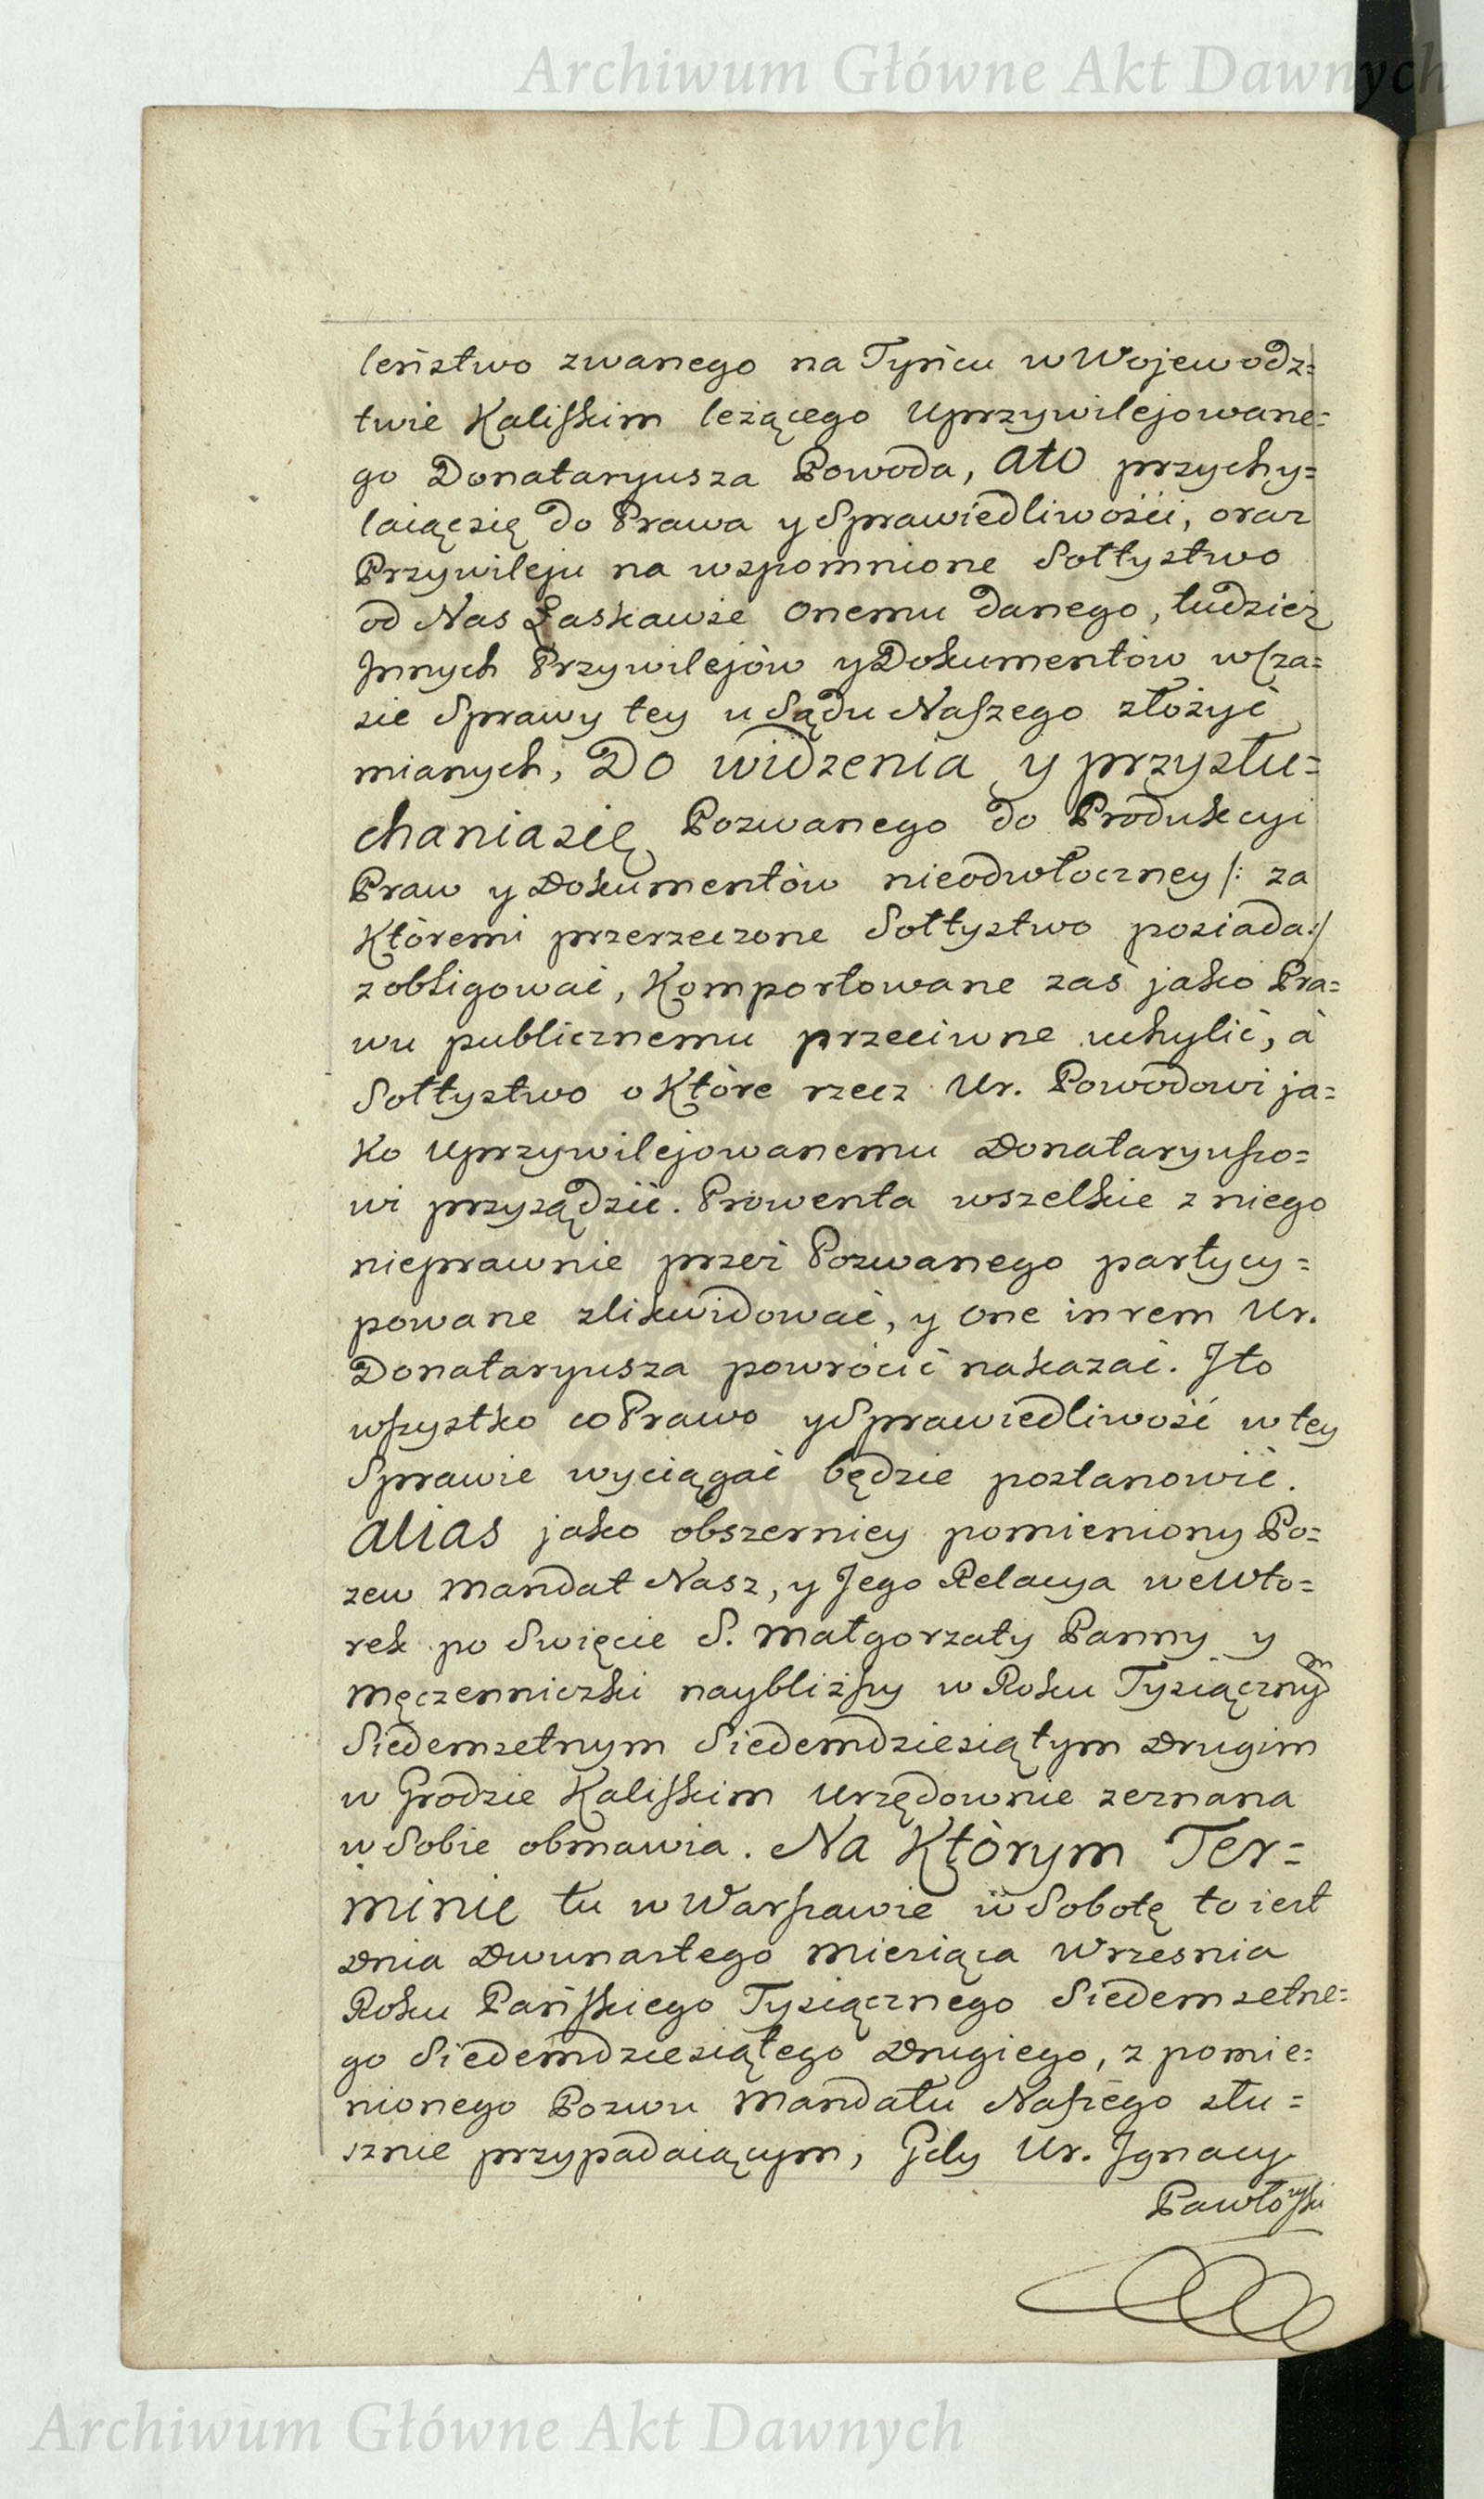 Archiwum Główne Akt Dawnych
leństwo zwanego na Tyńcu w Wojewodz=
twie Kaliskim leżącego Uprzywilejowane=
go Donataryusza Powoda, Ato przychy=
laiąc się do Prawa y Sprawiedliwości, oraz
Przywileju na wspomnione Sołtystwo
od Nas Łaskawie Onemu danego, tudzież
Jnnych Przywilejów y Dokumentów w cza=
sie Sprawy tey u Sądu Naszego złożyć
mianych, Do widzenia y przysłu=
chania się Pozwanego do Produkcyi
Praw y Dokumentów nieodwłoczney /: za
Któremi przerzeczone Sołtystwo posiada :/
zobligować, Komportowane zaś jako Pra=
wu publicznemu przeciwne uchylić, à
Sołtystwo o Które rzecz Ur. Powodowi ja=
ko Uprzywilejowanemu Donataryuszo=
wi przysądzić. Prowenta wszelkie z niego
nieprawnie przez Pozwanego partycy=
powane zlikwidować, y One in rem Ur.
Donataryusza powrócić nakazać. Jto
wszystko co Prawo y Sprawiedliwość w tey
Sprawie wyciągać będzie postanowić.
Alias jako obszerniey pomieniony Po=
zew Mandat Nasz, y Jego Relacya we Wto=
rek po Swięcie S. Małgorzaty Panny y
Męczenniczki naybliższy w Roku Tysiącznym
Siedemsetnym Siedemdziesiątym Drugim
w Grodzie Kaliskim Urzędownie zeznana
w Sobie obmawia. Na Którym Ter=
minie tu w Warszawie w Sobotę to iest
Dnia Dwunastego Miesiąca Września
Roku Pańskiego Tysiącznego Siedemsetne=
go Siedemdziesiątego Drugiego, z pomie=
nionego Pozwu Mandatu Naszego słu=
sznie przypadaiącym, Gdy Ur. Jgnacy
Pawłowski
Archiwum Główne Akt Dawnych